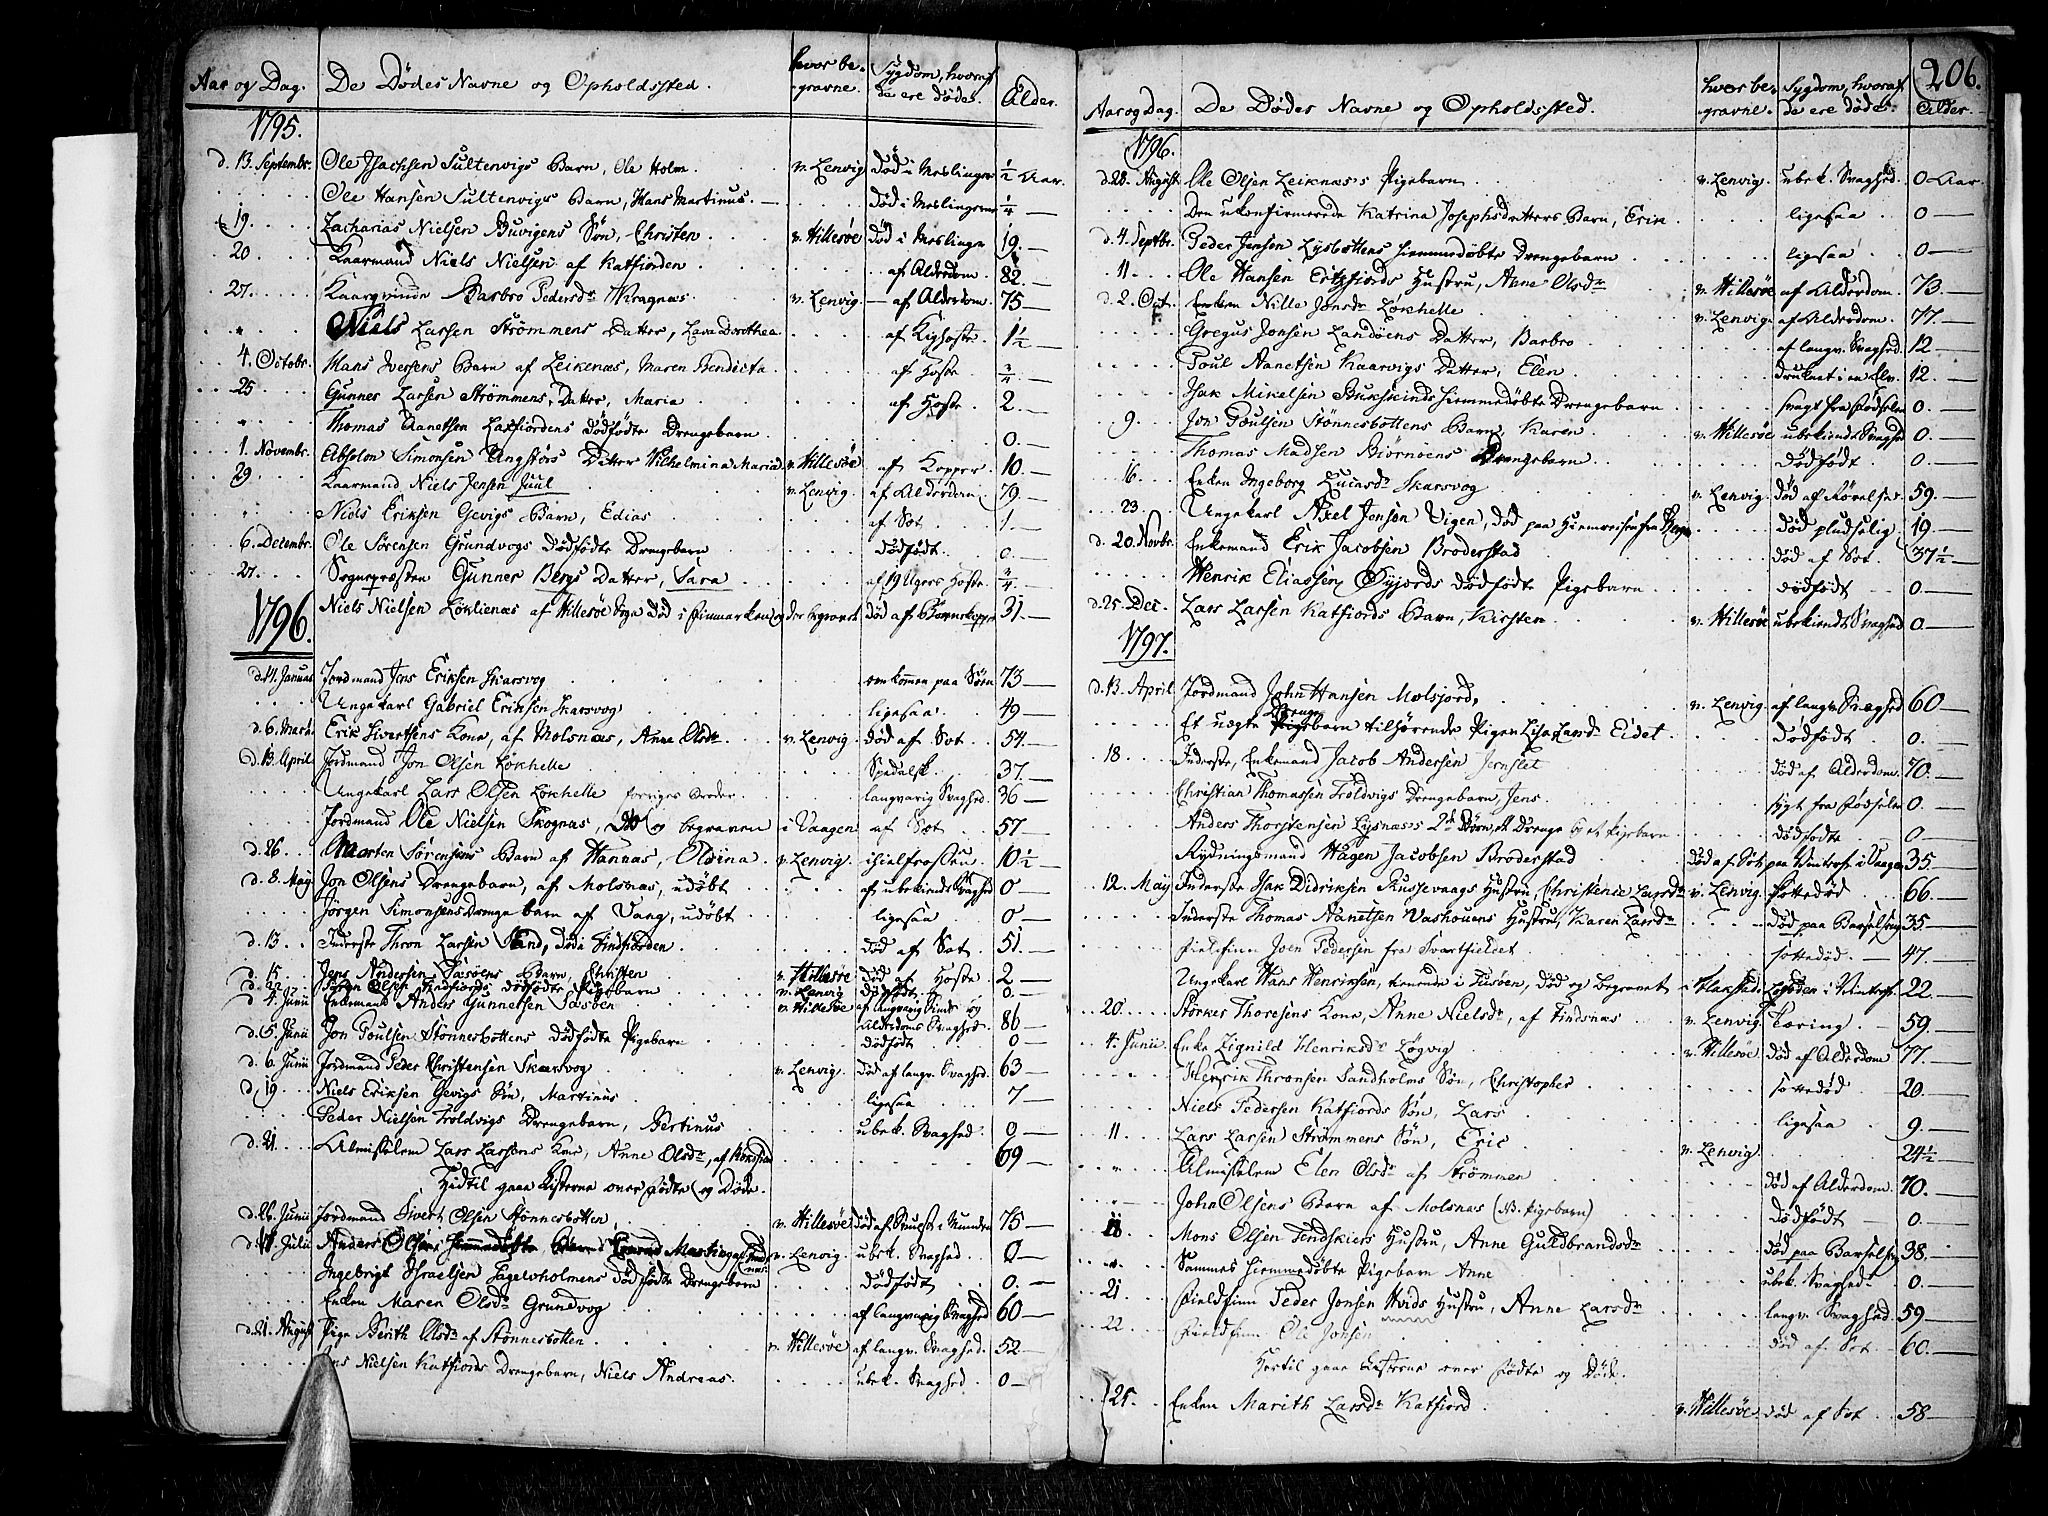 Aar og Dag. De Dødes Navne og Opholdssted. hvor be-gravne. Sygdom, hvoraf de ere døde. Alder.
1795.
d. 13. Septembr. Ole Isachsen Sultenvigs Barn, Ole Holm. v. Lenvig død i Meslinger 1/2 Aar.
Ole Hansen Sultenvigs Barn, Hans Martinus. død i Meslingerne 1/4
19. Zacharias Nielsen Buvigens Søn, Christen v. Hillesøe død i Meslinger 19.
20 Kaarmand Niels Nielsen af Katfiorden af Alderdom. 82.
27. Kaarqvinde Barbro Pedersdr Kragnæs. v. Lenvig af Alderdom. 75
Niels Larsen Strömmens Datter, Lava Dorothea af Kighoste. 1 1/2
4. Octobr. Hans Iversens Barn af Leikenæs, Maren Bendicta. af Hoste. 3/4
25 Gunner Larsen Strömmens, Datter, Maria af Hoste. 2.
Thomas Aanetsen Laxfiordens dødfødte Drengebarn. 0.
1. Novembr. Absolon Simonsen Angstørs Datter Vilhelmina Maria v. Hillesøe af Kopper 10.
29 Kaarmand Niels Jensen Juul v. Lenvig. af Alderdom 79.
Niels Eriksen Gevigs Barn, Edias af Sot 1.
6. Decembr. Ole Sörensen Grundvogs dødfødte Drengebarn dødfødt. 0.
27. Sognepræsten Gunner Bergs Datter, Sara af 19 Ugers Hoste. 3/4
1796. Niels Nielsen Löklienæs af Hillesøe Sogn død i Finmarken og der begravet død af Børnekopper 31.
d. 11. Januar Jordmand Jens Eriksen Skarsvog omkommen paa Søen 73
Ungekarl Gabriel Eriksen Skarsvog ligesaa. 49
d. 6. Marti Erik Sivertsens Kone, af Molsnæs, Anne Olsdr v. Lenvig. død af Sot 54.
d. 13. April Jordmand Jon Olsen Lökhelle Spedalsk 37.
Ungekarl Lars Olsen Lökhelle forriges Broder langvarig Svaghed 36
Jordmand Ole Nielsen Skognæs, død og begraven i Vaagen af Sot 57
d. 26. Morten Sörensens Barn af Hannæs, Oldina v. Lenvig. ihielfrossen 10 1/2
d. 8. May Jon Olsens Drengebarn, af Molsnæs, udøbt af ubekiendt Svaghed 0
Jörgen Simonsens Drengebarn af Vang, udøbt ligesaa 0
d. 13 Inderste Thron Larsen Sand, død i Findfiorden død af Sot 51.
d. 15 Jens Andersen Sasöens Barn, Christen v. Hillesøe død af Hoste 2
d. 22 dødfødte Pigebarn v. Lenvig dødfødt. 0.
d. 4. Junii Enkemand Anders Gunnelsen Sasöen v. Hillesøe af langvarig og Alderdoms Svaghed 86
d. 5. Junii Jon Poulsen Stönnesbottens dødfødte Pigebarn dødfødt 0
d. 6. Junii Jordmand Peder Christensen Skarsvog v. Lenvig. død af langv. Svaghed. 63
d. 19 Niels Eriksen Gevigs Søn, Martinus ligesaa 7
Peder Nielsen Troldvigs Drengebarn, Bertinus ubek. Svaghed 0
d. 21. Almisselem Lars Larsens Kone, Anne Olsdr, af 69
Hidtil gaae Listerne over fødte og Døde.
d. 26. Junii Jordmand Sivert Olsen Stönnesbotten v. Hillesøe død af i Munden 75
d. Julii Anders Olsens Martina v. Lenvig. ubek. Svaghed 0
Ingebrigt Israelsen Fagelvholmens dødfødte Drengebarn dødfødt 0.
Enken Maren Olsdr Grundvog af langvarig Svaghed 60
d. 21. August Pige Berith Olsdr af Stönnesbotten. v. Hillesøe af langv. Svaghed. 52
Nielsen Katfiords Drengebarn, Niels Andreas. ubek. Svaghed 0
206.
Aar og Dag. De Dødes Navne og Opholdssted. hvor be-gravne. Sygdom, hvoraf de ere døde. Alder.
1796.
d. 28. August Ole Olsen Leiknæs's Pigebarn v. Lenvig. ubek. Svaghed. 0 Aar.
Den ukonfirmerede Katrina Josephsdatters Barn, Erik ligesaa 0
d. 4. Septbr. Peder Jensen Lysbottens hiemmedøbte Drengebarn ligesaa 0
11 Ole Hansen Ertzfiords Hustru, Anne Olsdr v. Hillesøe af Alderdom. 73.
d. 2. Oct. Enken Nille Jonsdr Lökhelle v. Lenvig. af Alderdom. 77.
Gregus Jonsen Landöens Datter, Barbro af langv. Svaghed. 12
Poul Aanetsen Kaarvigs Datter, Elen druknet i en Elv. 12.
Isak Mikelsen Bukskinds hiemmedøbte Drengebarn svagt fra Fødselen 0.
9. Jon Poulsen Stönnesbottens Barn, Karen v. Hillesøe ubekiendt Svaghed 0.
Thomas Madsen Biörnöens Drengebarn dødfødt 0.
16 Enken Ingeborg Lucasdr Skarsvog v. Lenvig. død af 59.
23 Ungekarl Axel Jenson Vigen, død paa Hiemreisen fra Bergen død pludselig 19.
d. 20. Novbr. Enkemand Erik Jacobsen Broderstad død af Sot 37 1/2
Henrik Eliassen Öyjords dødfødte Pigebarn dødfødt 0
d. 25. Dec. Lars Larsen Katfiords Barn, Kirsten v. Hillesøe ubekiendt Svaghed 0.
1797.
d. 13. April Jordmand John Hansen Molsjord, v. Lenvig af langv. Svaghed 60
Et uægte Drengebarn tilhørende Pigen Lisa Eidet dødfødt 0.
18 Inderste, Enkemand Jacob Andersen Jernslet død af Alderdom. 70.
Christian Thomassen Troldvigs Drengebarn, Jens sygt fra Fødselen 0.
Anders Thorstensen Lysnæs's 2de Børn, et Drenge og et Pigebarn dødfødte 0
Rydningsmand Hagen Jacobsen Broderstad død af Sot paa Vinterf. i Vaagen 35.
12. May Inderste Isak Didriksen Russevaags Hustru, Christense Larsdr v. Lenvig. sottedød 66.
Inderste Thomas Aanetsen Vashouens Hustru, Karen Larsdr død paa Barselseng 35.
Fieldfinn Joen Pedersen fra Svartfieldet sottedød. 47.
Ungekarl Hans Henriksen, tienende i Tusöen, død og begravet i Flakstad Lofoden i Vinterf. 22.
20. Störker Thoresens Kone, Anne Nielsdr, af Findsnæs v. Lenvig Tæring. 59.
4. Junii Enke Zignild Henriksdr Løgvig v. Hillesøe død af Alderdom 77.
Henrik Thronsen Sandholms Søn, Christopher sottedød 20.
Niels Pedersen Katfiords Søn, Lars ligesaa 9.
11 Lars Larsen Strömmens Søn, Eric v. Lenvig. 24 1/2
Almisselem Elen Olsdr af Strömmen død af Alderdom. 70.
John Olsens Barn af Molsnæs (NB. Pigebarn) dødfødt 0.
Mons Olsen Findskiers Hustru, Anne Guldbrandsdr død paa Barselseng 38.
Sammes hiemmedøbte Pigebarn Anne ubek. Svaghed 0.
21 Fieldfinn Peder Jonsen Hvids Hustru, Anne Larsdr langv. Svaghed. 59
22 Fieldfinn Ole Jonsen død af Sot 60.
Hertil gaae Listerne over fødte og Døde.
25. Enken Marith Larsdr Katfiord v. Hillesøe død af Sot 58